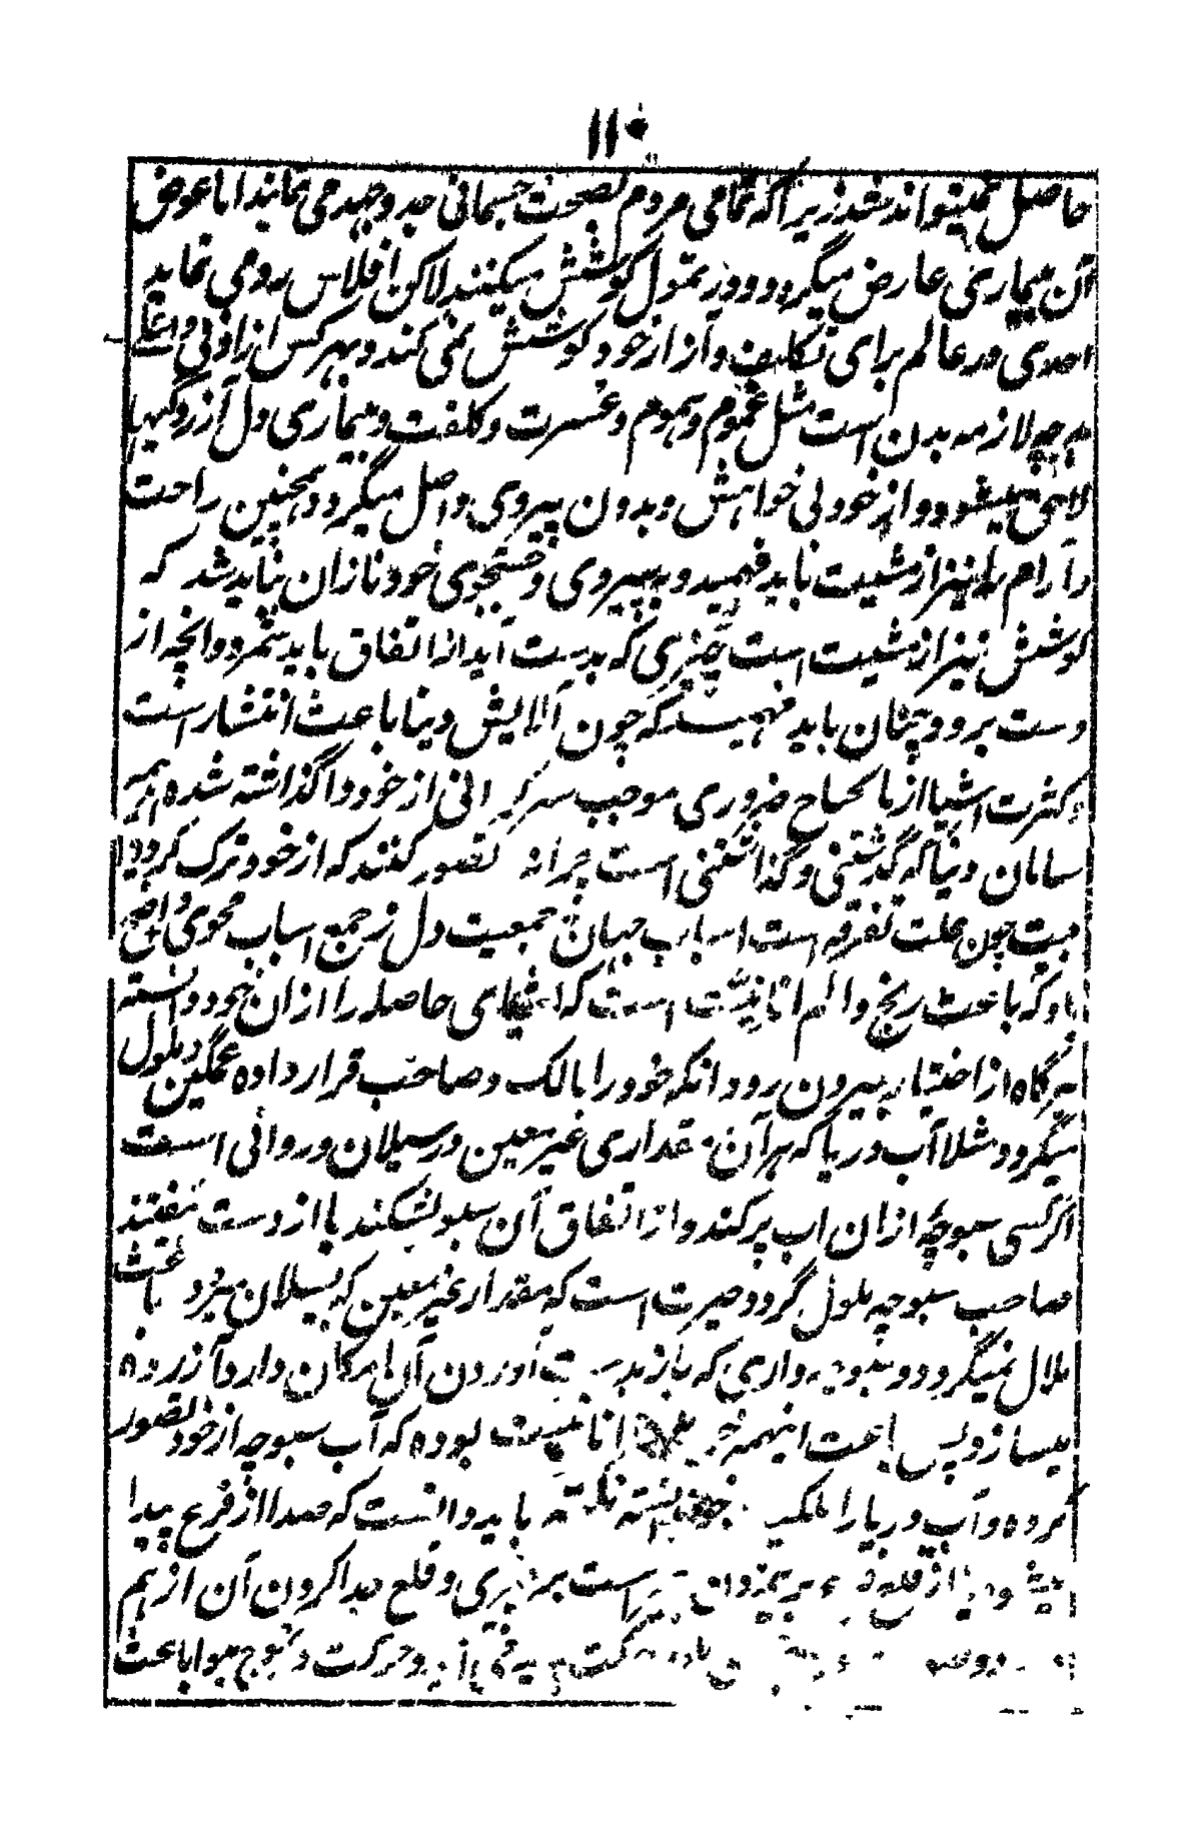 ۱۱۰
حاصل نمیتواند شد زیراکه تمامی مردم بصحت جسمانی جد و جهد می نمایند اما عوض
آن بیماری عارض میگردد و در تمول کوشش میکنند لاکن افلاس رو می نماید
احدی در عالم برای تکلیف و آزار خود کوشش نمی کند و بهر کس از ادنی و اعلی
هر چه لازمه بدن است مثل غموم و هموم و عسرت و کلفت و بیماری دل آزردگیها
لاحق میشود و از خود بی خواهش و بدون پیروی واصل میگردد همچنین راحت
و آرام را نیز از مشیت باید فهمید و به پیروی و جستجوی خود نازان نباید شد که
کوشش نیز از مشیت است چیزی که بدست آید از اتفاق باید شمرد و انچه از
دست برود چنان باید فهمید که چون آلایش دنیا باعث انتشار است
و کثرت اشیا از مایحتاج ضروری موجب سرگرانی از خود واگذاشته شده هر
سامان دنیا که گذشتنی و گذاشتنی است چرا نه تصور کنند که از خود ترک کردم
بیت چون علت تفرقه است اسباب جهان جمعیت دل ز جمع اسباب مجوی و واضح
باد که باعث رنج و الم انانیت است که اشیای حاصله را از ان خود دانسته
هرگاه از اختیار بیرون رود انکه خود را مالک و صاحب قرار داده غمگین و ملول
میگردد مثلا آب دریا که هر آن مقداری غیر معین در سیلان و روانی است
اگر کسی سبوچه از ان اب پر کند و از اتفاق آن سبو بشکند یا از دست بیفتند
صاحب سبوچه ملول گردد حیرت است که مقدار غیر معین که بسیلان میرود باعث
ملال نمیگردد و سبوچه واری که باز بدست آوردن آن امکان دارد آزرده
میسازد پس باعث اینهمه انانیت بوده که آب سبوچه از خود تصور
کرده و آب دریا را نکته باید دانست که صدا از قرع پیدا
میشود یا از قلع و قلع جدا کردن آن از هم
و حرکت و تموج هوا باعث